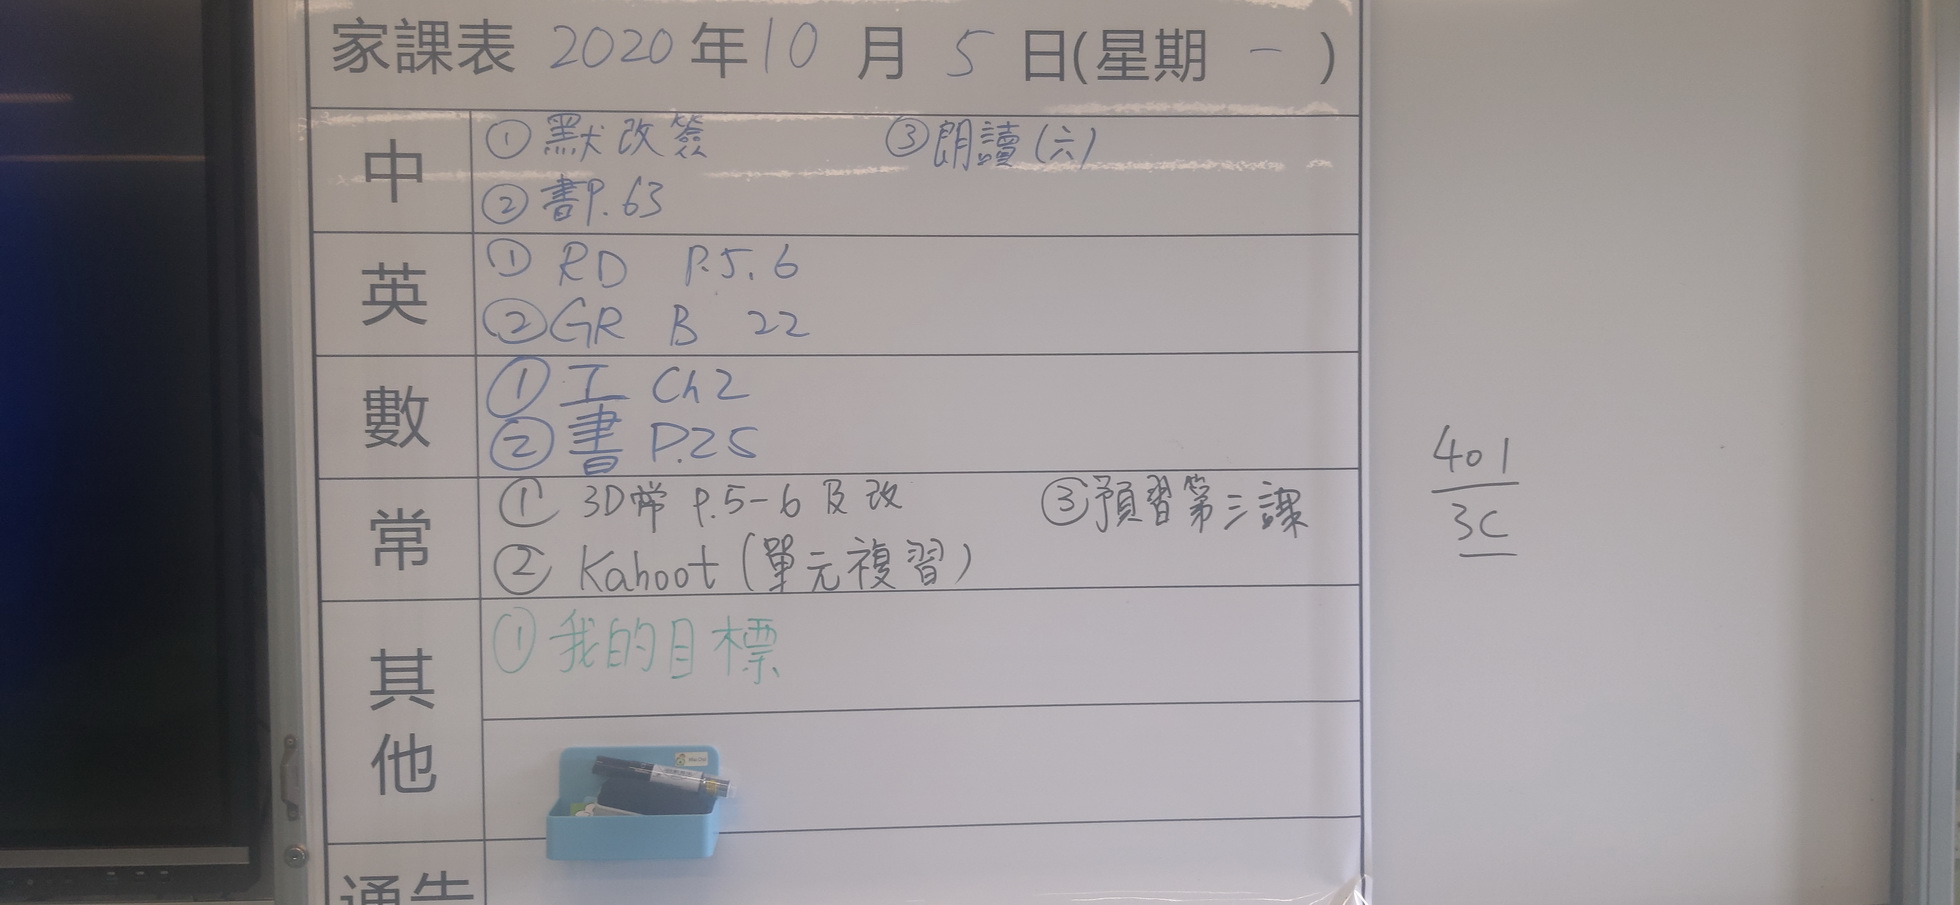 家課表 2020年10月5日(星期一)
中
① 默改簽 ③朗讀(六)
② 書P.63
英
① RD P.5.6
② GR B 22
數
① 工 Ch2
② 書 P.25
常
① 3D常 P.5-6 及改 ③預習第三課
② Kahoot (單元複習)
其他
① 我的目標
通告
401
3C